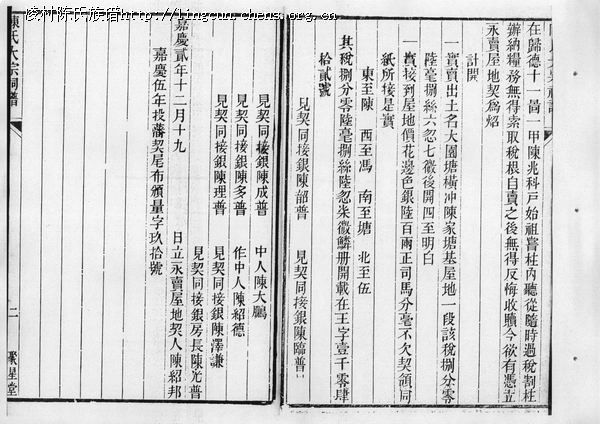 陵村陈氏族谱 http://lingcun.chens.org.cn
在歸德十一啚一甲陳兆科戶始祖嘗柱內聽從隨時過稅割柱
辦納糧務無得索取稅根自賣之後無得反悔收贖今欲有憑立
永賣屋地契為炤
計開
一實賣出土名大園塘橫冲陳家塘基屋地一段該稅捌分零
陸毫捌絲六忽七徽後開四至明白
一實接到屋地價花邊色銀陸百兩正司馬分毫不欠契領同
紙所接是實
東至陳 西至馮 南至塘 北至伍
其稅捌分零陸毫捌絲陸忽柒徽鱗册開載在王字壹千零肆
拾貳號
見契同接銀陳韶普 見契同接銀陳臨普
見契同接銀陳成普 中人陳大鵬
見契同接銀陳多普 作中人陳紹德
見契同接銀陳理普 見契同接銀陳澤謙
見契同接銀房長陳光普
嘉慶貳年十二月十九 日立永賣屋地契人陳紹邦
嘉慶伍年投藩契尾布頒量字玖拾號
陳氏大宗祠譜 二 聚星堂